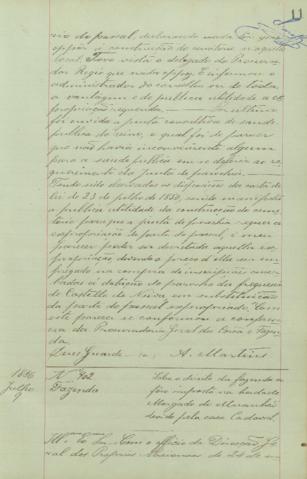 rio do passal, declarando nada ter que
oppôr á construcção do cemiterio n'aquelle
local. Teve vista o delegado do Procura-
dor Regio que nada oppoz. E informou o
administrador do concelho ser de toda
a vantagem e de publica utilidade a ex-
propriação requerida. Por ultimo
foi ouvida a junta consultiva de saude
publica do reino, a qual foi de parecer
que não havia inconveniente algum
para a saude publica em se deferir ao re-
querimento da junta de parochia.
Tendo sido observadas as disposições da carta de
lei de 23 de julho de 1850, sendo manifesta
a publica utilidade da construcção do cemi-
terio para que a junta de parochia requer a
expropriação de parte do passal, é meu
parecer poder ser decretada aquella ex-
propriação, devendo o preço d'ella ser em-
pregado na compra de inscripções aver-
badas á dotação do parocho da freguesia
de Castello de Neiva em substituição
da parte do passal expropriado. Com
este parecer se conformou a conferen-
cia da Procuradoria Geral da Corôa e Fazen-
da.
Deus Guarde A. Martins
1896
Julho
9
Nº 462
Fazenda
Sobre o direito da fazenda a
fôro imposto na herdade
Morgado de
devido pela casa Cadaval.
Illmo e Exmo Snr. Com o officio da Direcção Ge-
ral dos Proprios Nacionaes de 24 de